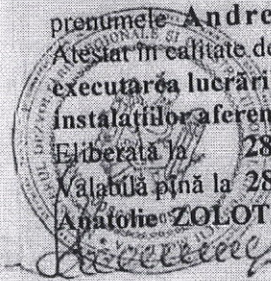 prenumele Andr
Atestat în calitate d
executarea lucrări
instalaţiilor aferen
Eliberată la 28
Valabilă pînă la 28
Anatolie ZOLOT